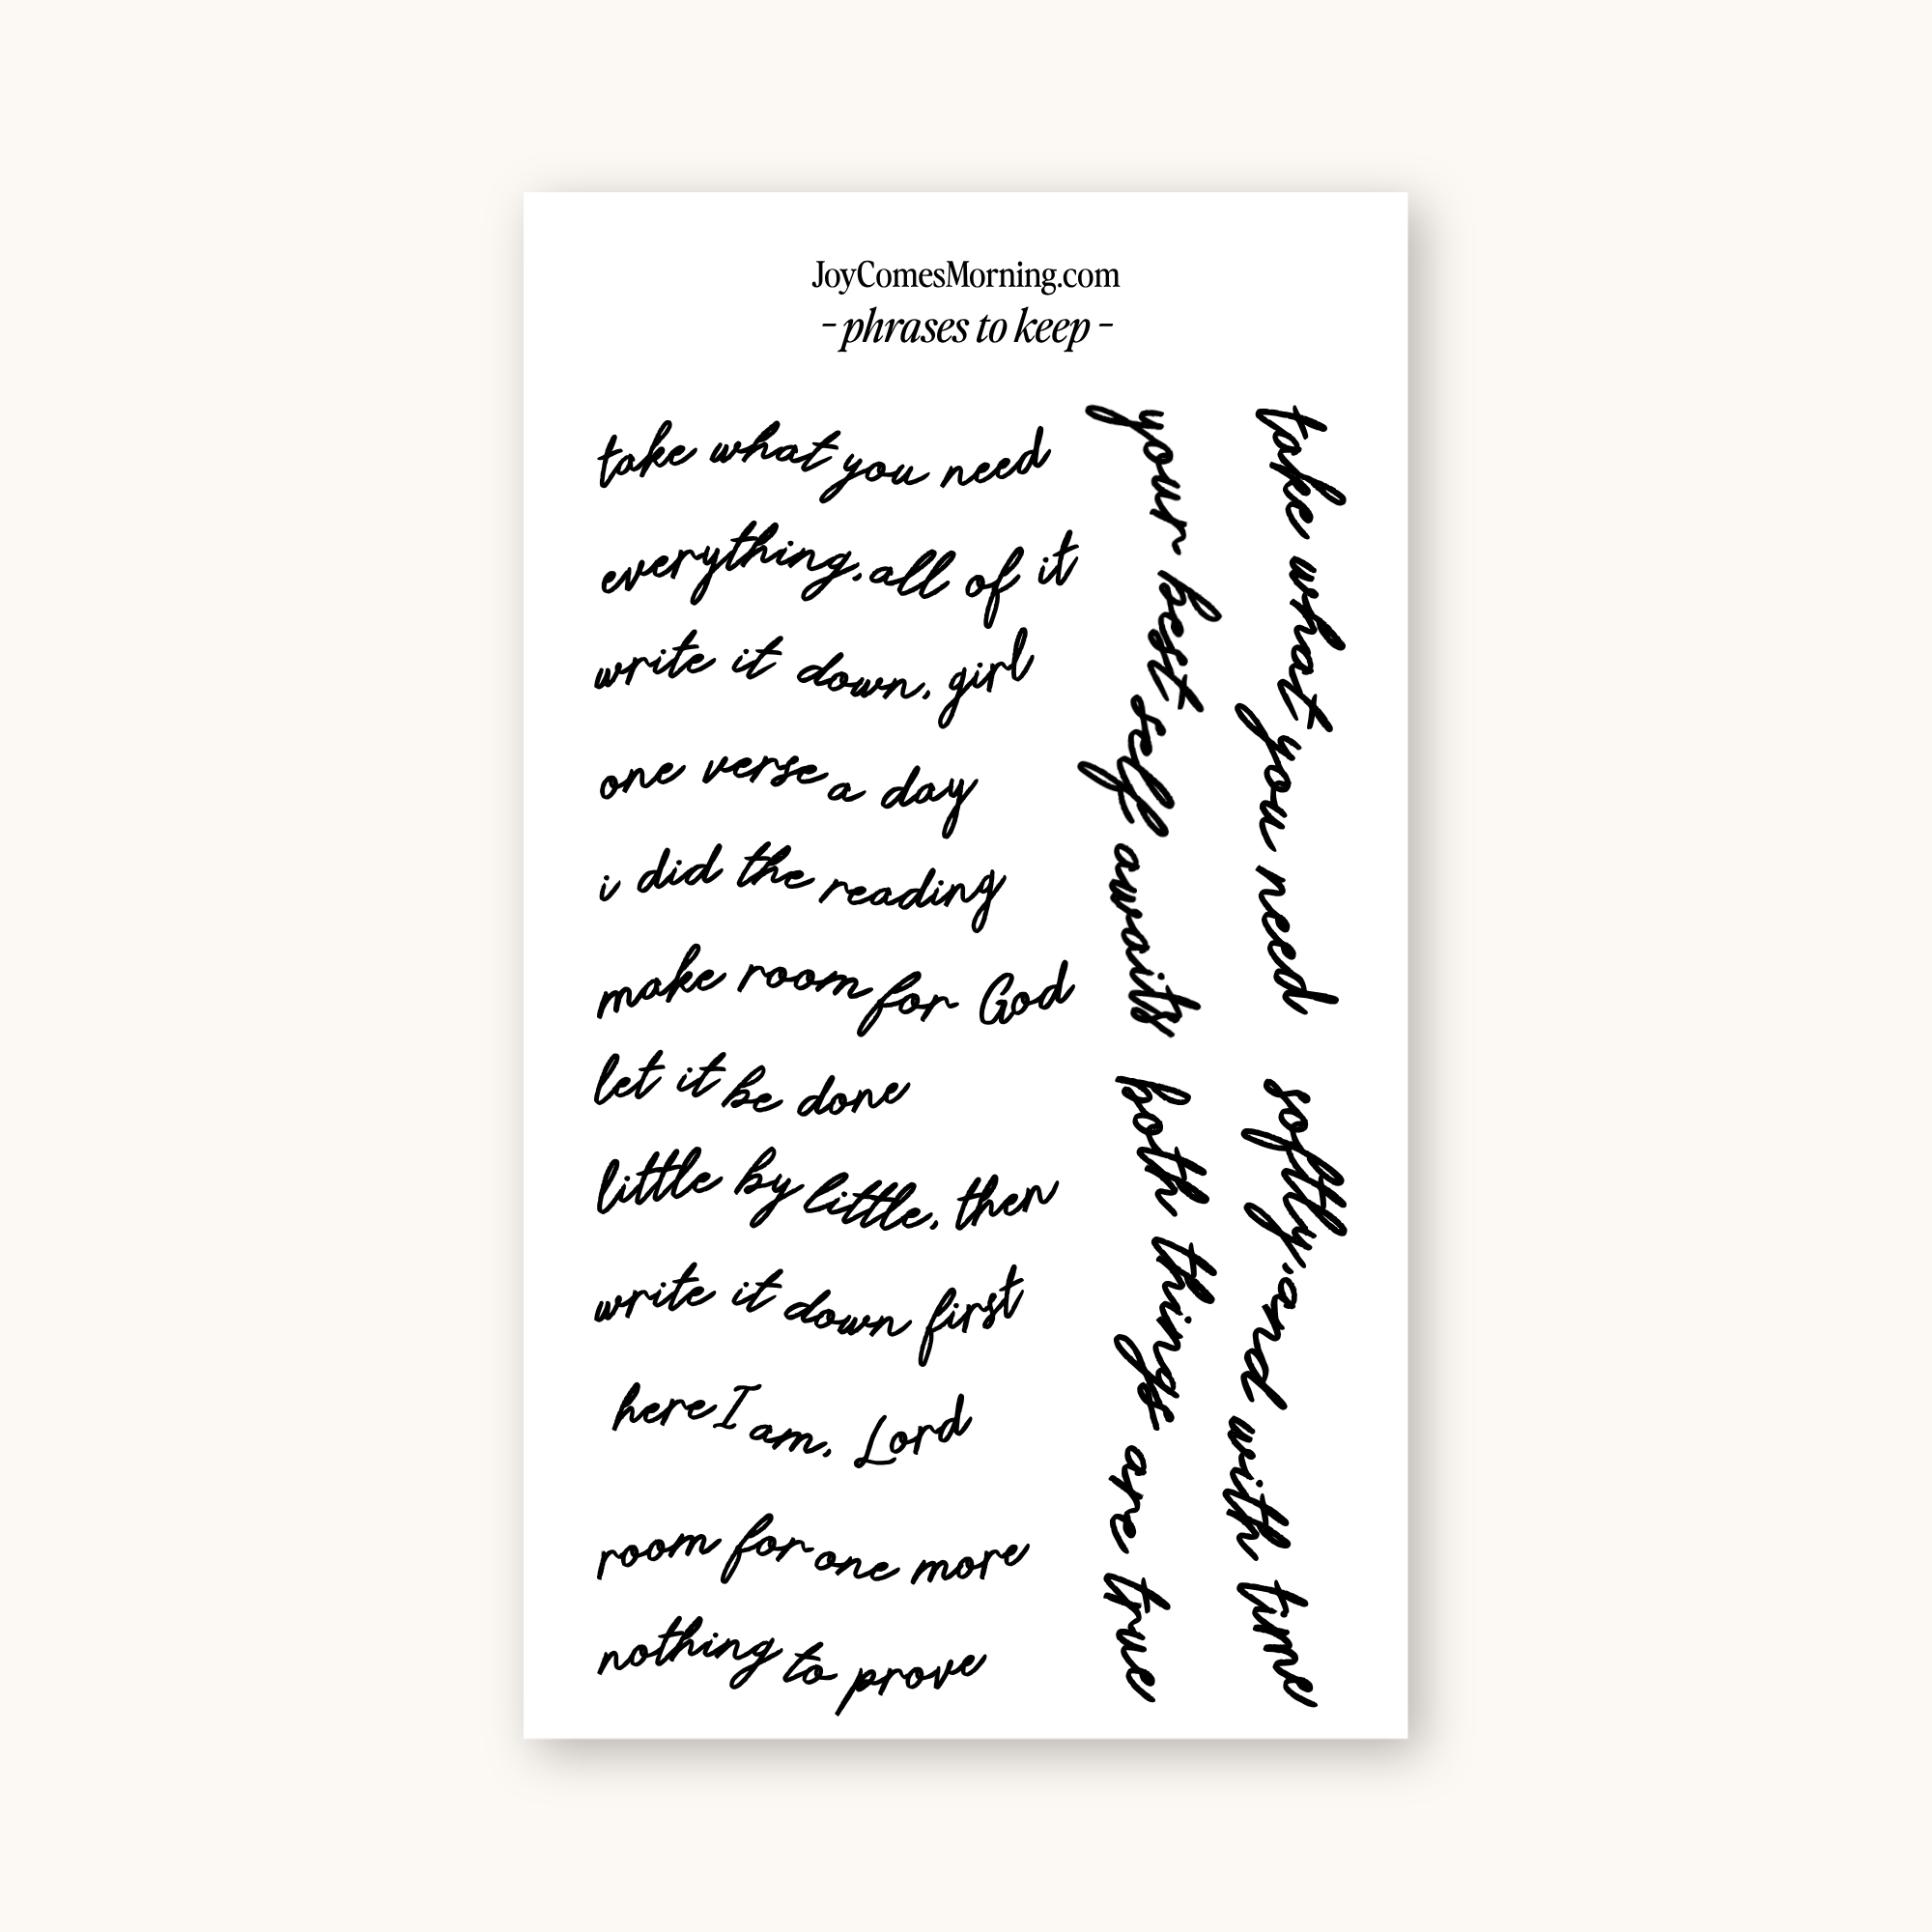 JoyComesMorning.com
- phrases to keep -
take what you need
everything, all of it
write it down, girl
one verse a day
i did the reading
make room for God
let it be done
little by little, then
write it down first
here I am, Lord
room for one more
nothing to prove
your best self awaits
take what you need
both things are true
softly, and with time